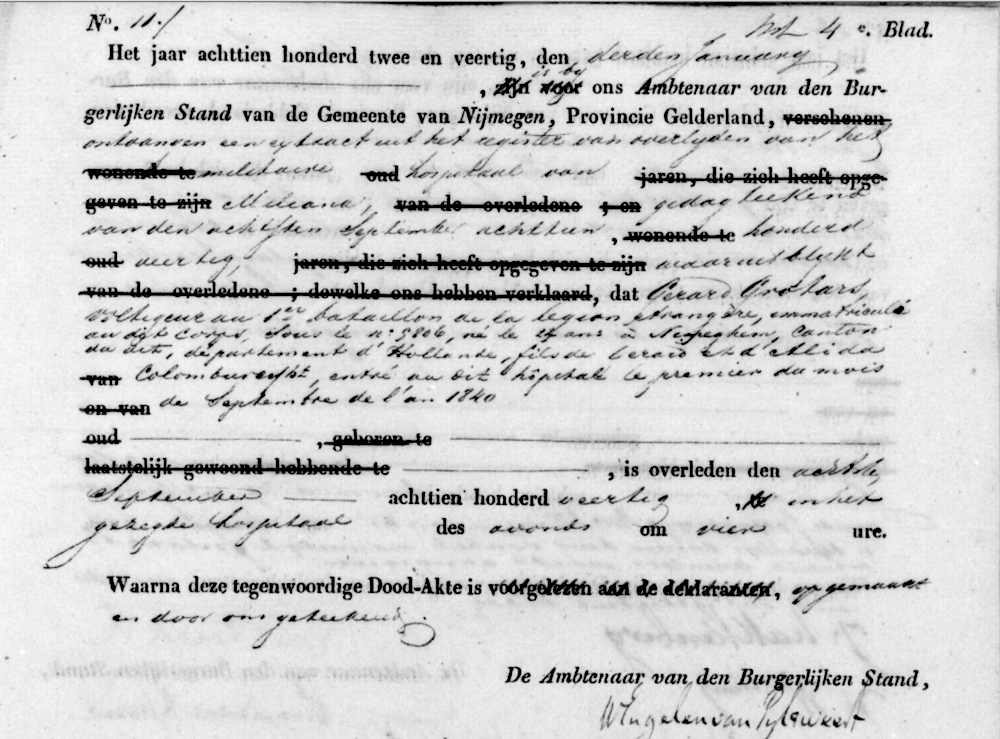 No. 11. het 4 e. Blad.
Het jaar achttien honderd twee en veertig, den derden January
, zijn voor is by ons Ambtenaar van den Bur-
gerlijken Stand van de Gemeente van Nijmegen, Provincie Gelderland, verschenen
ontvangen een extract uit het register van overlyden van het
wonende te militaire oud hospitaal van jaren, die zich heeft opge-
geven te zijn Mileana, van de overledene ; en gedagteekend
van den achtsten September achttien , wonende te honderd
oud veertig, jaren, die zich heeft opgegeven te zijn waaruit blykt
van de overledene ; dewelke ons hebben verklaard, dat Gerard Grotars,
voltigeur au 1er bataillon de la legion étrangère, immatriculé
au dit Corps, sous le No. 5806, né le ans à Nimeghem, Canton
du dit, département d'Hollande, fils de Gerard et d'Alida
van entré au dit hôpital le premier du mois
en van de Septembre de l'an 1840
oud , geboren te
laatstelijk gewoond hebbende te , is overleden den achtste
September achttien honderd veertig , te in het
gezegde hospitaal des avonds om vier ure.
Waarna deze tegenwoordige Dood-Akte is voorgelezen aan de deklaranten, opgemaakt
en door ons geteekend.
De Ambtenaar van den Burgerlijken Stand,